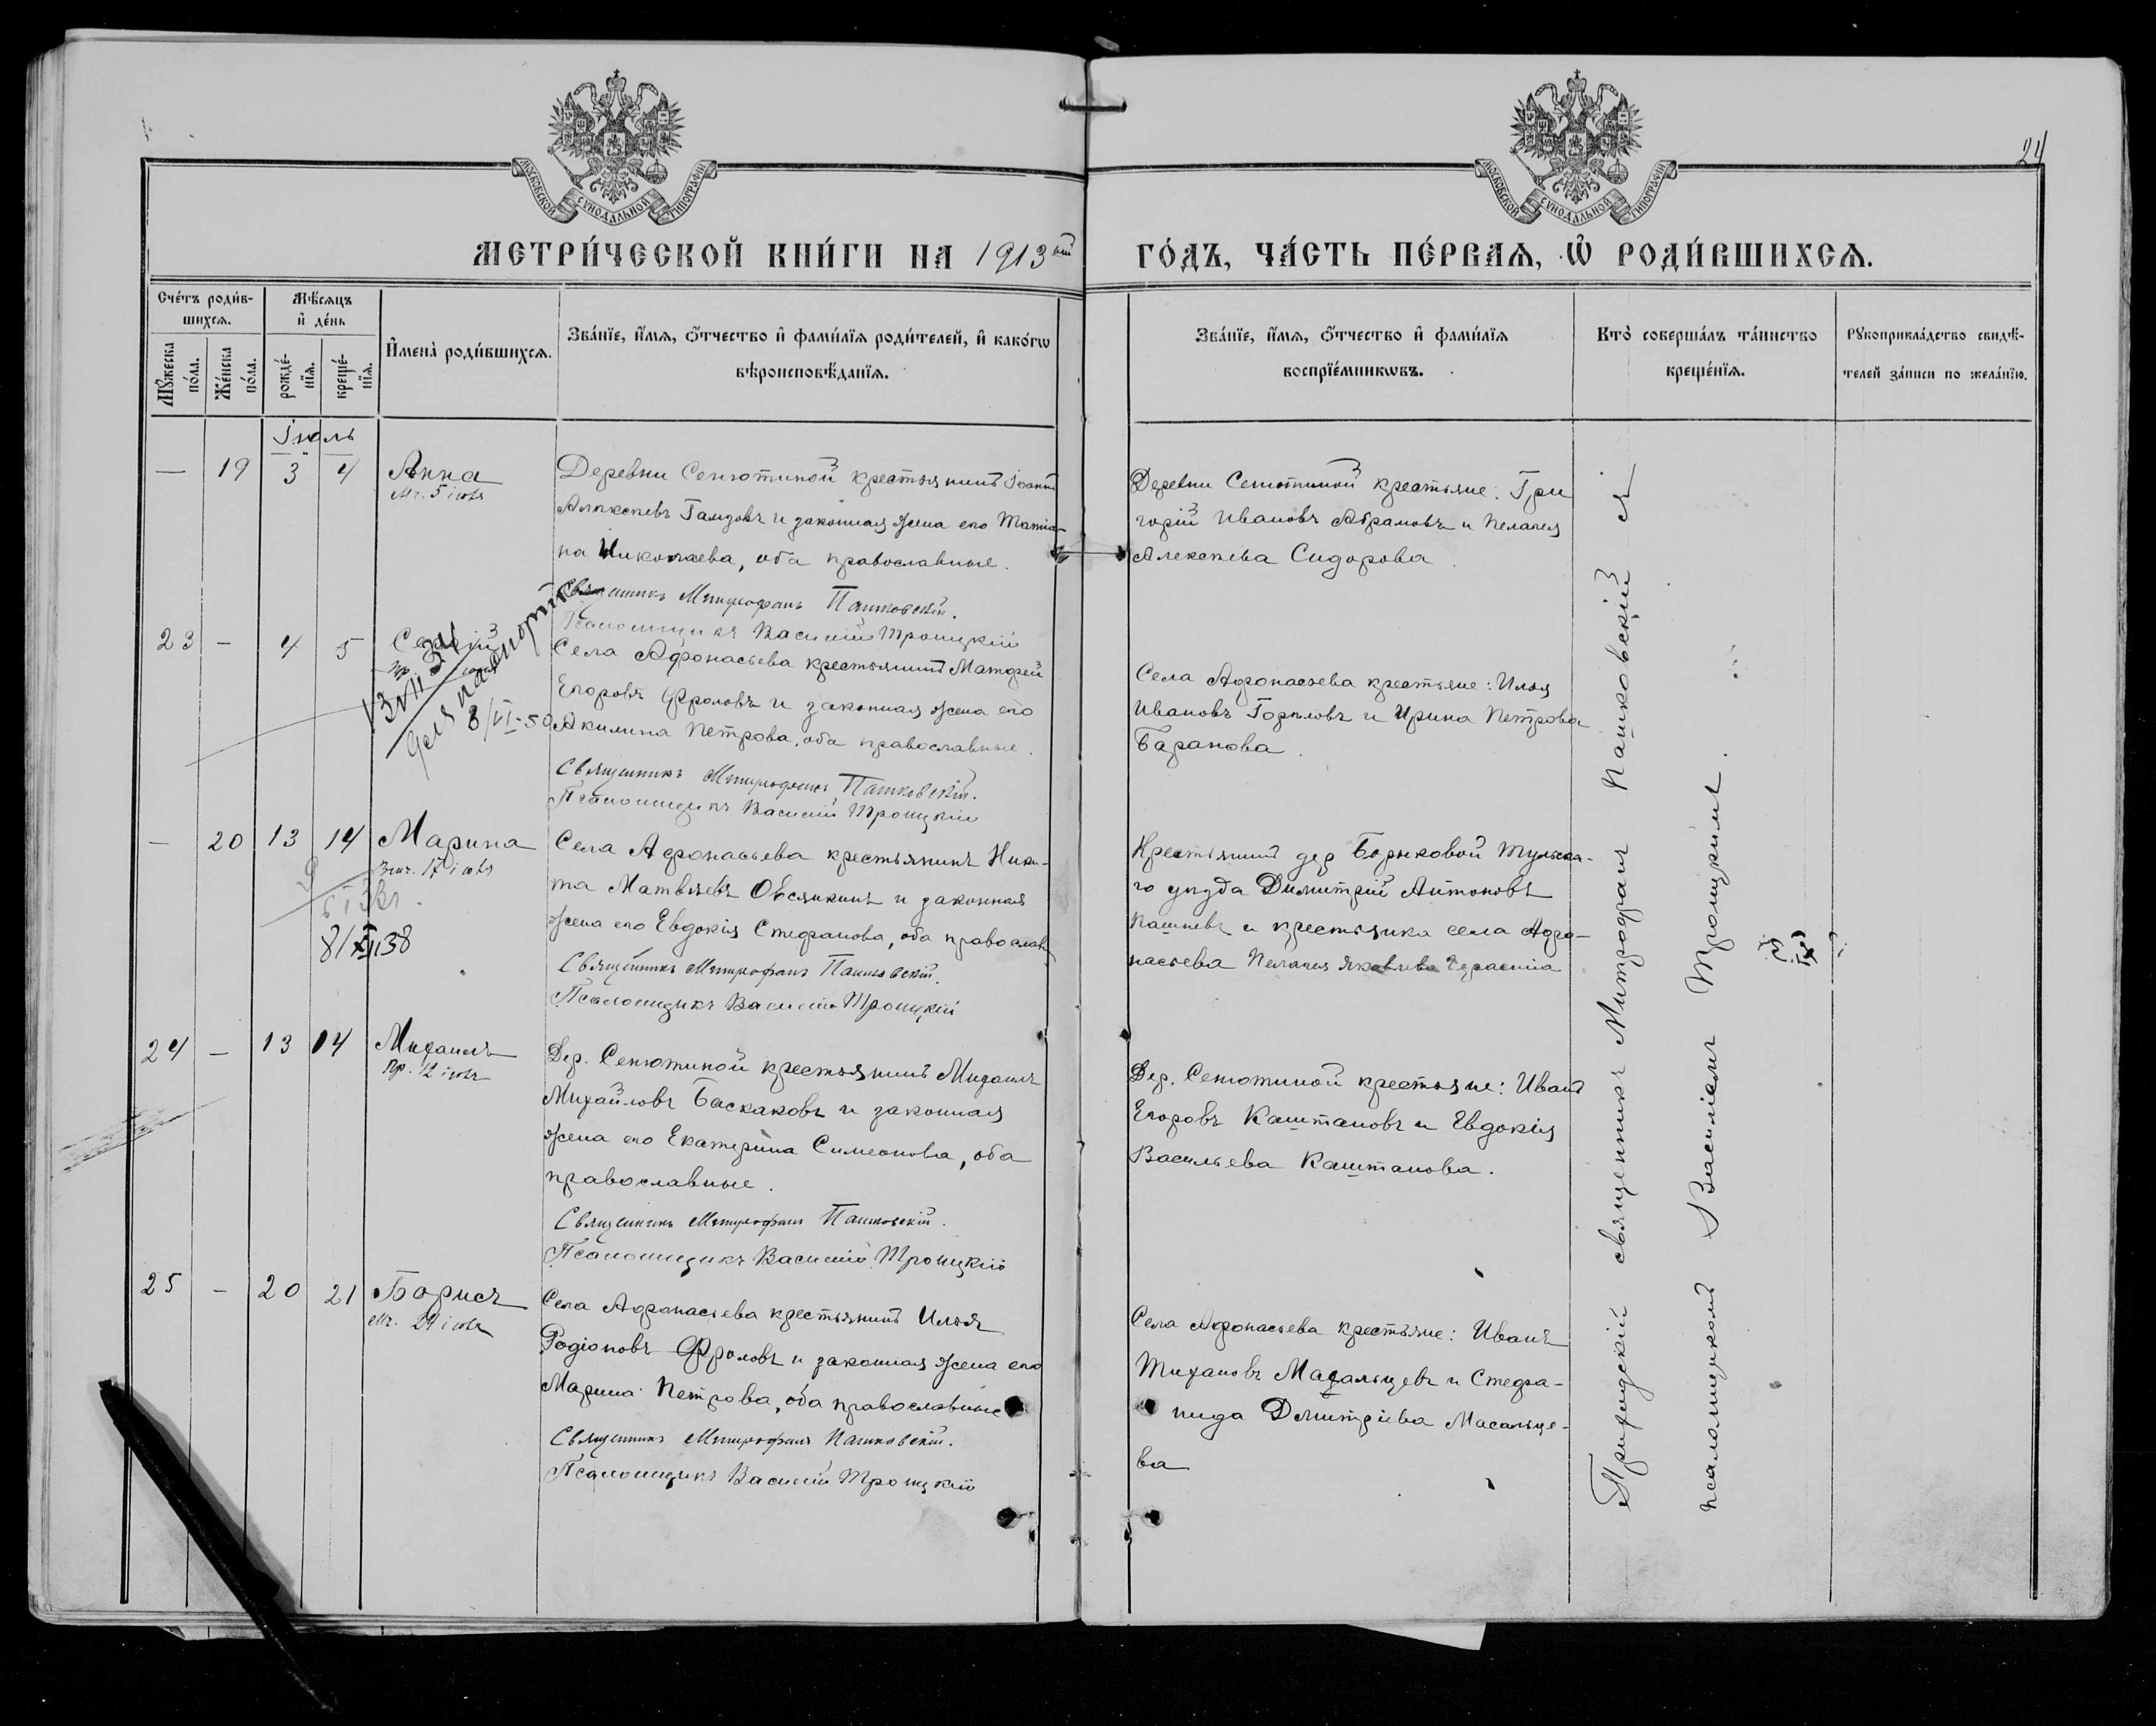 24
МОСКОВСКОЙ СУНОДАЛЬНОЙ ТИПОГРАФІИ
МОСКОВСКОЙ СУНОДАЛЬНОЙ ТИПОГРАФІИ
МЕТРИ́ЧЕСКОЙ КНИ́ГИ НА 1913ый ГО́ДЪ, ЧА́СТЬ ПЕ́РВАѦ, Ѡ҆ РОДИ́ВШИХСѦ.
Сче́тъ роди́в-
шихсѧ.
Мꙋ́жеска по́ла.
Же́нска по́ла.
Мѣ́сѧцъ
и҆ де́нь
рожде́-
нїѧ.
креще́-
нїѧ.
И҆мена̀ роди́вшихсѧ.
Зва́нїе, и҆́мѧ, ѻ҆́тчество и҆ фами́лїѧ роди́телей, и҆ како́гѡ
вѣроисповѣ́данїѧ.
Зва́нїе, и҆́мѧ, ѻ҆́тчество и҆ фами́лїѧ
воспрїе́мникѡвъ.
Кто̀ соверша́лъ та́инство
креще́нїѧ.
Рꙋкоприкла́дство свидѣ́-
телей за́писи по жела́нїю.
Іюль
— 19 3 4 Анна
Мч. 5 іюля
Деревни Сенютиной крестьянинъ Іоаннъ
Алексѣевъ Гамзовъ и законная жена его Татіа-
на Николаева, оба православные.
Священникъ Митрофанъ Пашковскій.
Псаломщикъ Василій Троицкій
Деревни Сенютиной крестьяне: Гри
горій Ивановъ Абрамовъ и Пелагея
Алексѣева Сидорова
23 — 4 5 Сергій
для паспорта
8/VI-50
Села Афонасьева крестьянинъ Матфей
Егоровъ Фроловъ и законная жена его
Акилина Петрова, оба православные.
Священникъ Митрофанъ Пашковскій.
Псаломщикъ Василій Троицкій
Села Афонасьева крестьяне: Илья
Ивановъ Горѣловъ и Ирина Петрова
Баранова.
— 20 13 14 Марина
Вмч. 17 іюля
8/XII 38
Села Афонасьева крестьянинъ Ники-
та Матвѣевъ Овсянкинъ и законная
жена его Евдокія Стефанова, оба православ
Священникъ Митрофанъ Пашковскій.
Псаломщикъ Василій Троицкій
Крестьянинъ дер Борыковой Тульска-
го уѣзда Димитрій Антоновъ
и крестьянка села Афо-
насьева Пелагея Яковлева
24 — 13 14 Михаилъ
Пр. 12 іюля
Дер. Сенютиной крестьянинъ Михаилъ
Михайловъ Баскаковъ и законная
жена его Екатерина Симеонова, оба
православные.
Священникъ Митрофанъ Пашковскій.
Псаломщикъ Василій Троицкій
Дер. Сенютиной крестьяне: Иванъ
Егоровъ Каштановъ и Евдокія
Васильева Каштанова.
25 — 20 21 Борисъ
Мч. 24 іюля
Села Афонасьева крестьянинъ Илья
Родіоновъ Фроловъ и законная жена его
Марина Петрова, оба православные
Священникъ Митрофанъ Пашковскій.
Псаломщикъ Василій Троицкій
Села Афонасьева крестьяне: Иванъ
Тихановъ Масальцевъ и Стефа-
нида Дмитріева Масальце-
ва
Приходскій священникъ Митрофанъ Пашковскій съ
псаломщикомъ Василіемъ Троицкимъ.